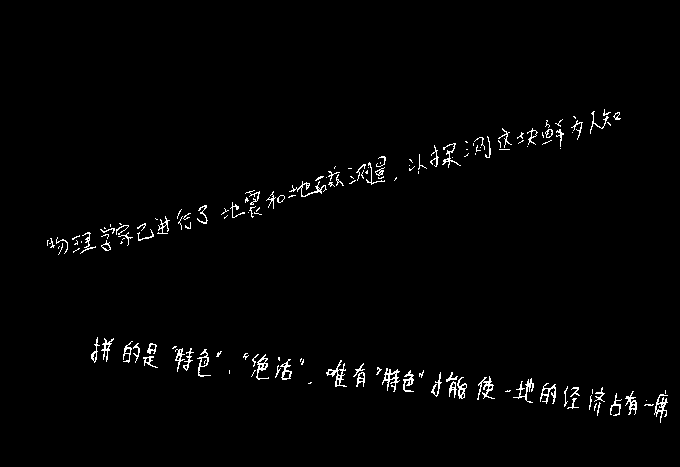 物理学家已进行了地震和地磁测量，以探测这块鲜为人知
拼的是“特色”、“绝活”，唯有“特色”才能使一地的经济占有一席